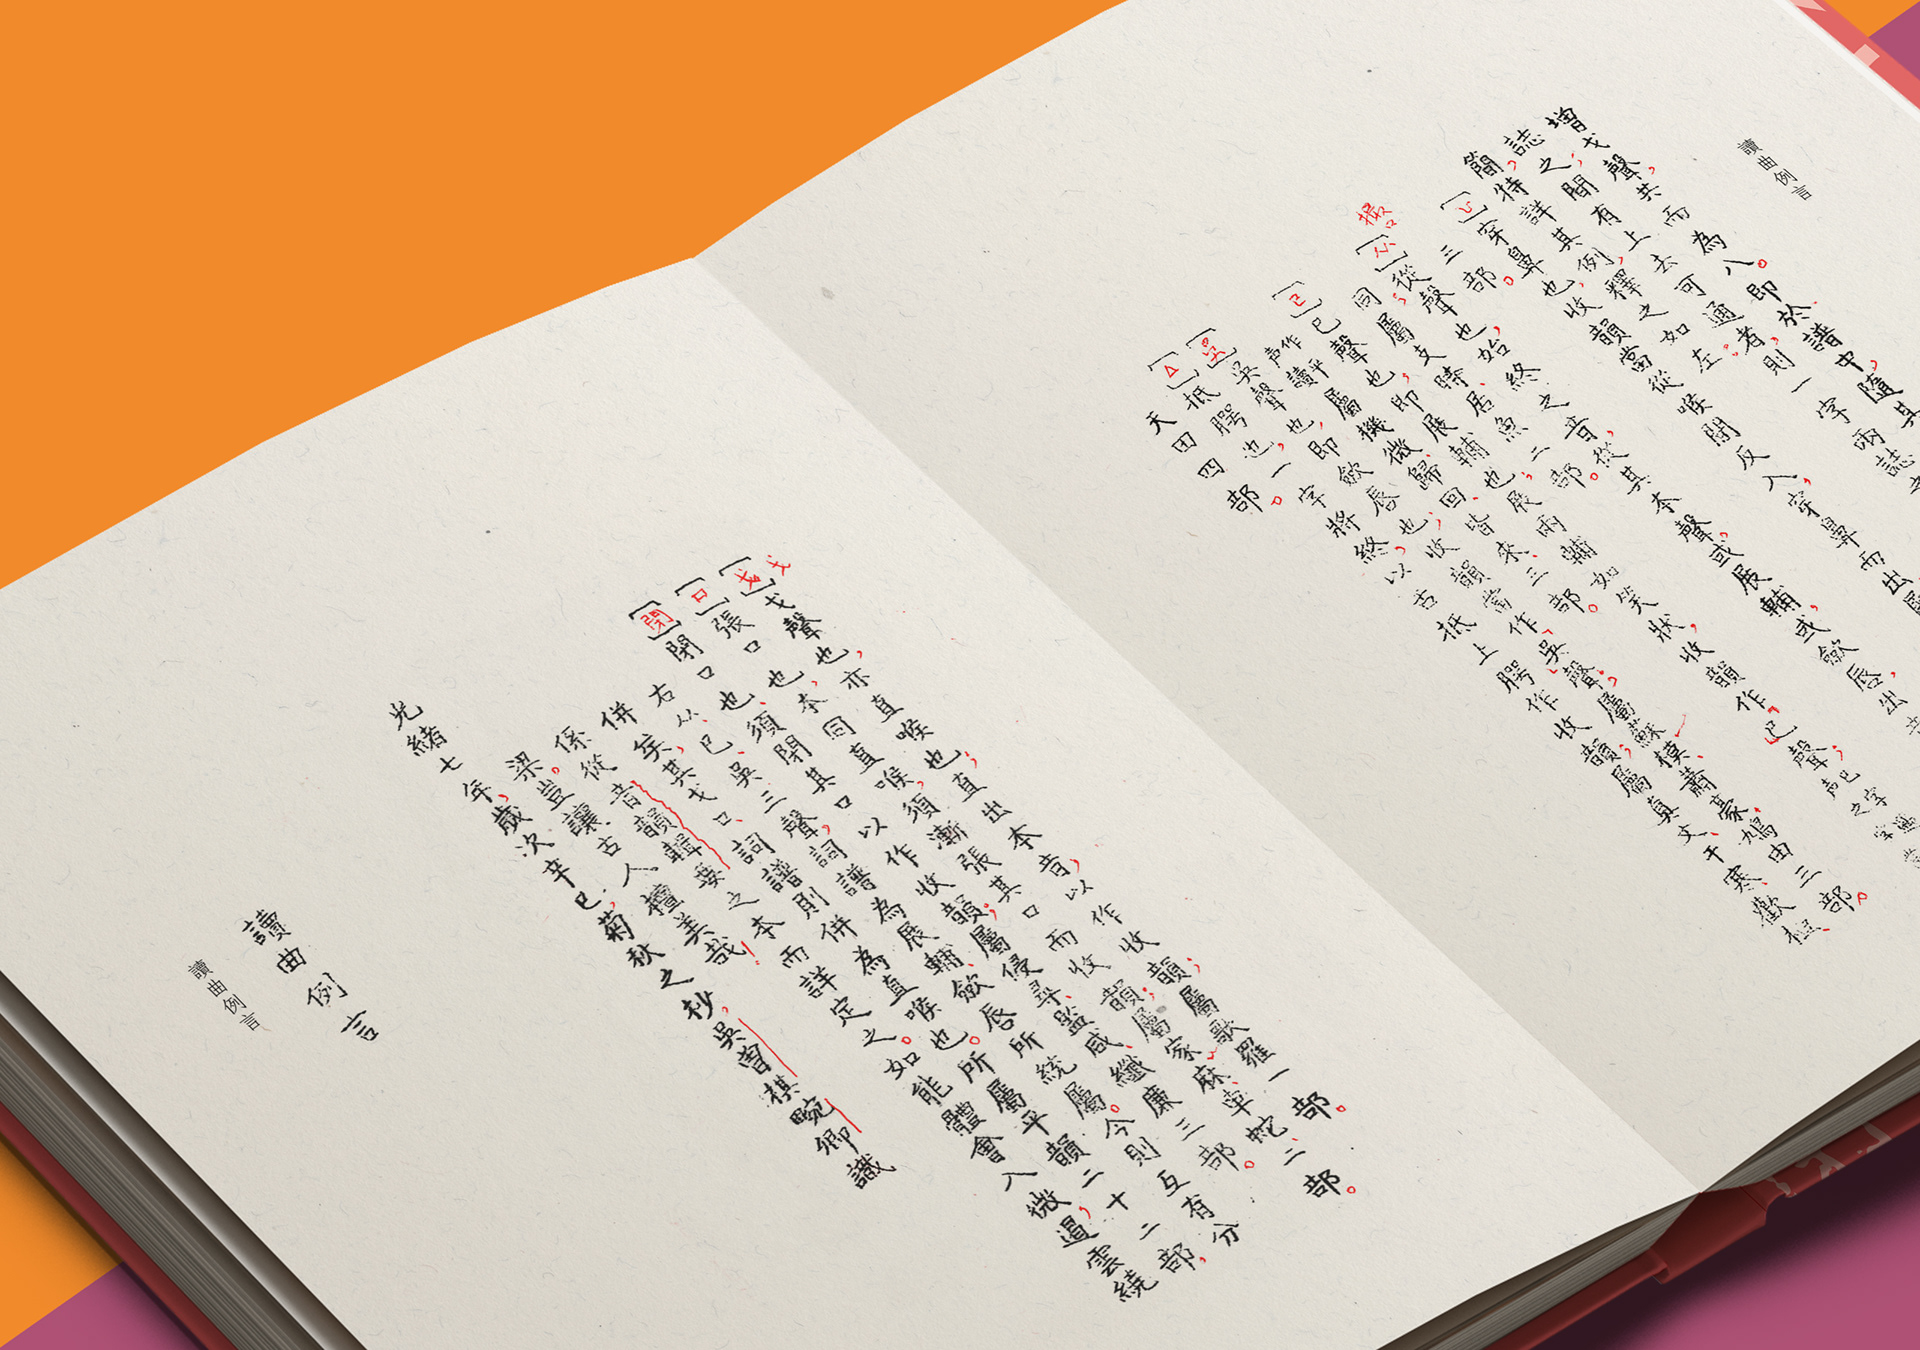 讀曲例言
增戈聲，共而為八。即於譜中，隨其
誌之；間有上去可通者，則一字兩誌
簡，特詳其例，釋之如左。
［乚］穿鼻也，收韻當從喉間反入，穿鼻而出
三部。
撮［从］從聲也，始終之音，從其本聲，或展輔，或歛唇，出
同；屬支時、居魚二部。
［已］已聲也，即展輔也；展兩輔如笑狀，收韻作已聲；
作平声讀 屬機微、歸回、皆來三部。
［吳］吳聲也，即歛唇也；收韻當作吳聲；屬蘇模、蕭豪、鳩由三部。
［△］抵腭也，一字將終，以舌抵上腭作收韻；屬真文、干寒、歡桓、
天田四部。
［戈］戈 戈聲也，亦直喉也；直出本音，以作收韻；屬歌羅一部。
［口］張口也，本同直喉，須漸張其口而收韻；屬家麻、車蛇二部。
［閉］閉口也，須閉其口以作收韻；屬侵尋、監咸、纖廉三部。
右从、已、吳三聲，詞譜為展輔、歛唇所統屬。今則互有分
併矣，其戈、口，詞譜則併為直喉也。所屬平韻二十二部，
係從音韻輯要之本而詳定之。如能體會入微，遏雲繞
梁。豈讓古人檀美哉！
光緒七年，歲次辛巳，菊秋之杪，吳曾祺畹卿識
讀曲例言
讀曲例言